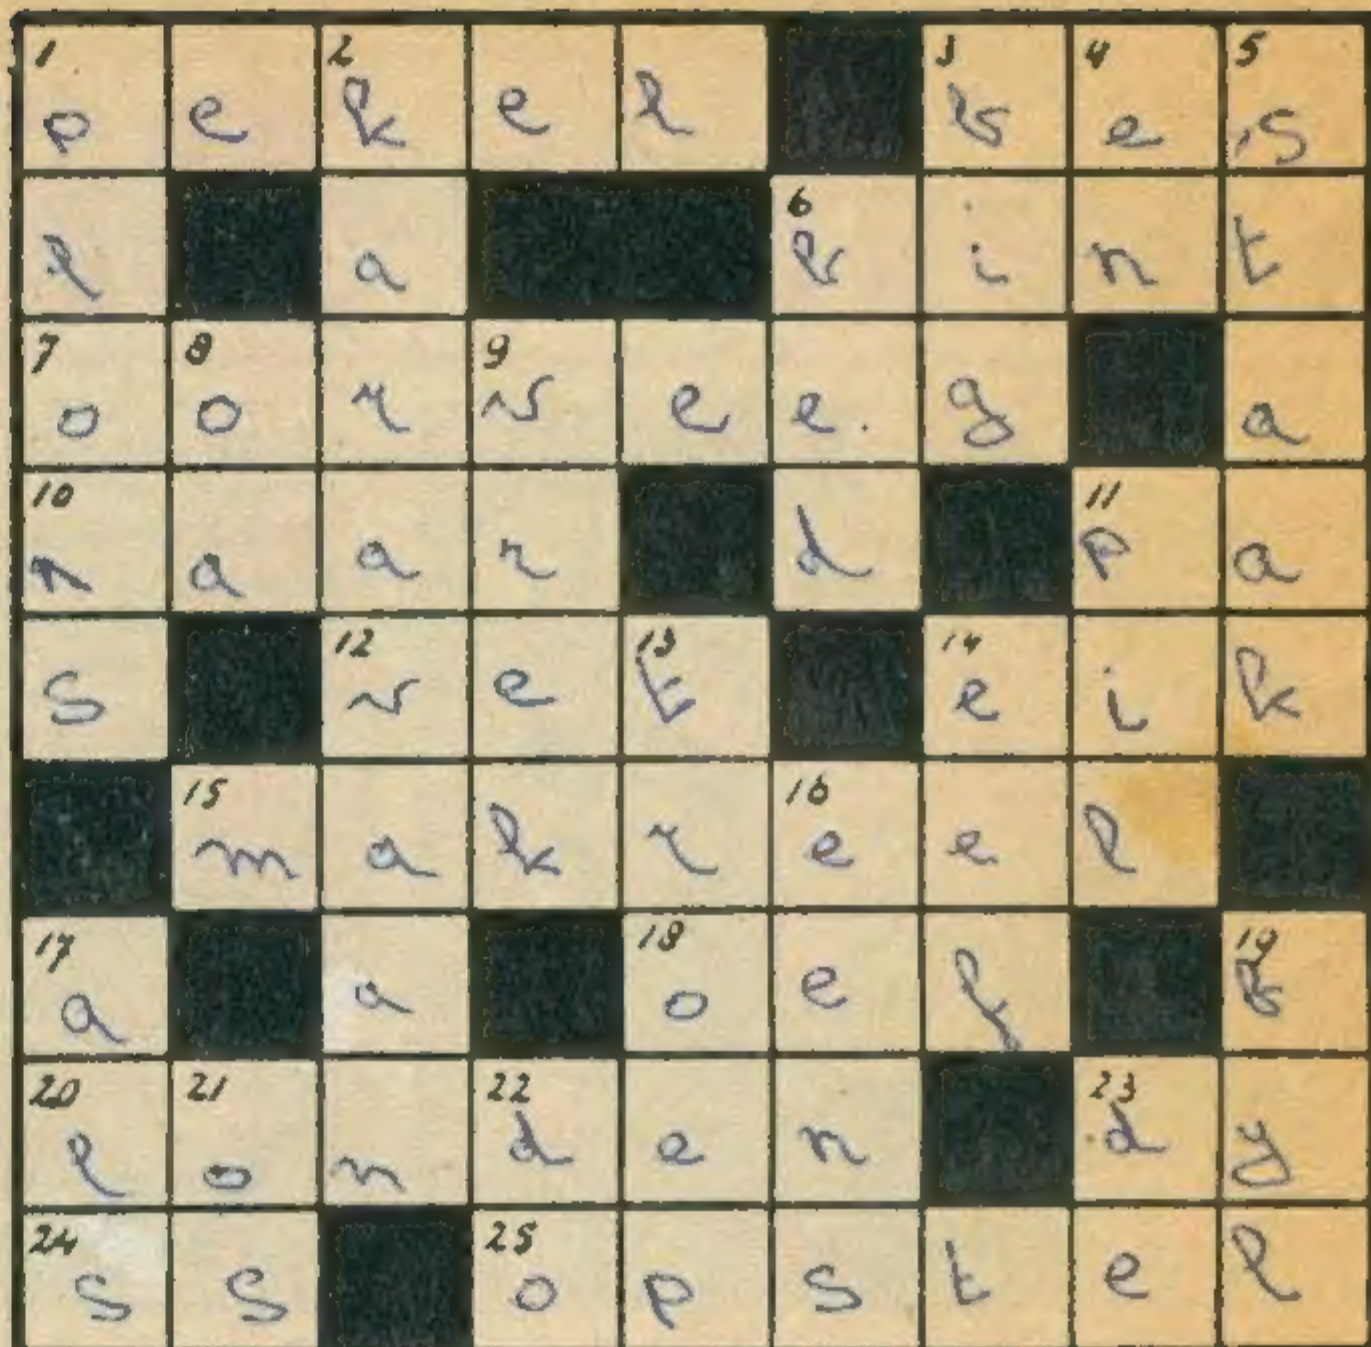 1 p e 2 k e l 3 b e 4 5 s
l a 6 b i n t
7 o 8 o r 9 v e e g a
10 n a a r d 11 p a
s 12 v e 13 t 14 e i k
15 m a k r 16 e e l
17 a a 18 o e f 19 b
20 l 21 o n 22 d e n 23 d y
24 s s 25 o p s t e l